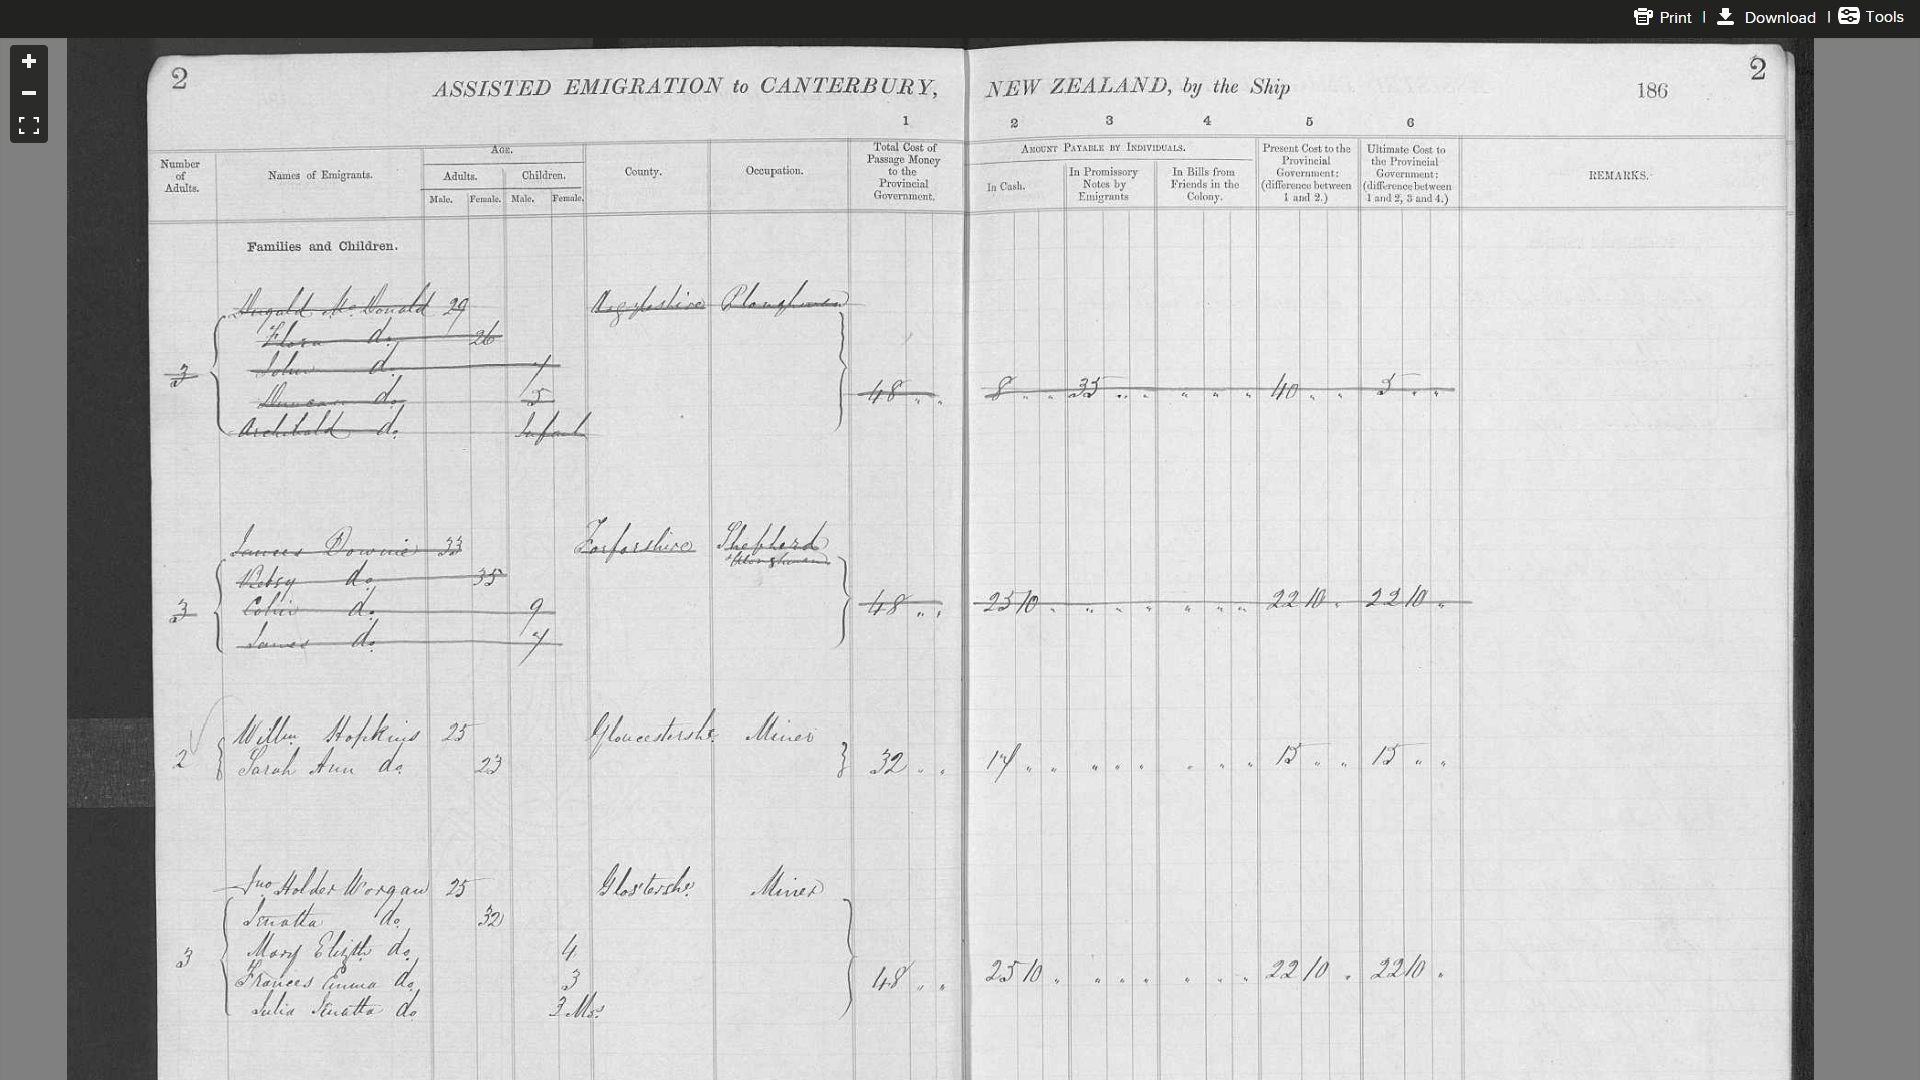 Print | Download | Tools
2 ASSISTED EMIGRATION to CANTERBURY, NEW ZEALAND, by the Ship 186 2
1 2 3 4 5 6
Number of Adults. Names of Emigrants. Age. Adults. Male. Female. Children. Male. Female. County. Occupation. Total Cost of Passage Money to the Provincial Government. AMOUNT PAYABLE BY INDIVIDUALS. In Cash. In Promissory Notes by Emigrants In Bills from Friends in the Colony. Present Cost to the Provincial Government: (difference between 1 and 2.) Ultimate Cost to the Provincial Government: (difference between 1 and 2, 3 and 4.) REMARKS.
Families and Children.
Dugald McDonald 29 Argyleshire Ploughman
Flora do. 26
John do. 7
3 48 " " 8 " " 35 " " " " " 40 " " 5 " "
Duncan do. 5
Archibald do. Infant
James Downie 33 Forfarshire Shepherd
Ploughman
Betsy do. 35
3 Colin do. 9 48 " " 25 10 " " " " " " " 22 10 " 22 10 "
James do. 7
Willm. Hopkins 25 Gloucestersh. Miner
2 Sarah Ann do. 23 32 " " 17 " " " " " " " " 15 " " 15 " "
Jno Holder Worgan 25 Glostersh. Miner
do. 32
Mary Elizth do. 4
3 Frances Emma do. 3 48 " " 25 10 " " " " " " " 22 10 " 22 10 "
Julia do. 3 Mos.